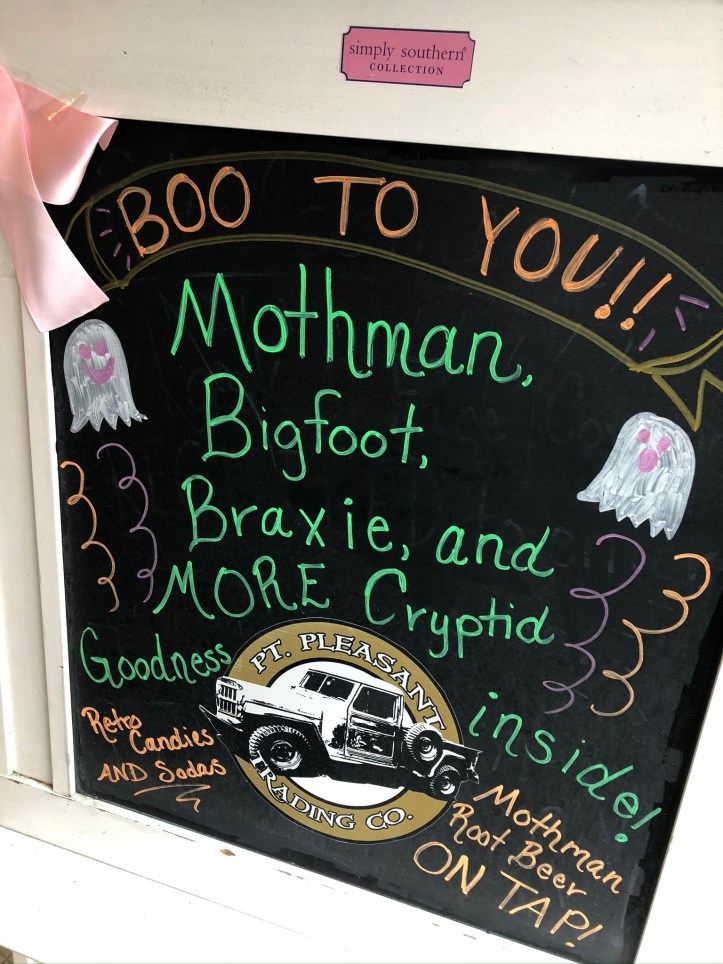 simply southern®
COLLECTION
BOO TO YOU!!
Mothman,
Bigfoot,
Braxie, and
MORE Cryptid
Goodness inside!
PT. PLEASANT
TRADING CO.
Retro
Candies
AND Sodas
Mothman
Root Beer
ON TAP!